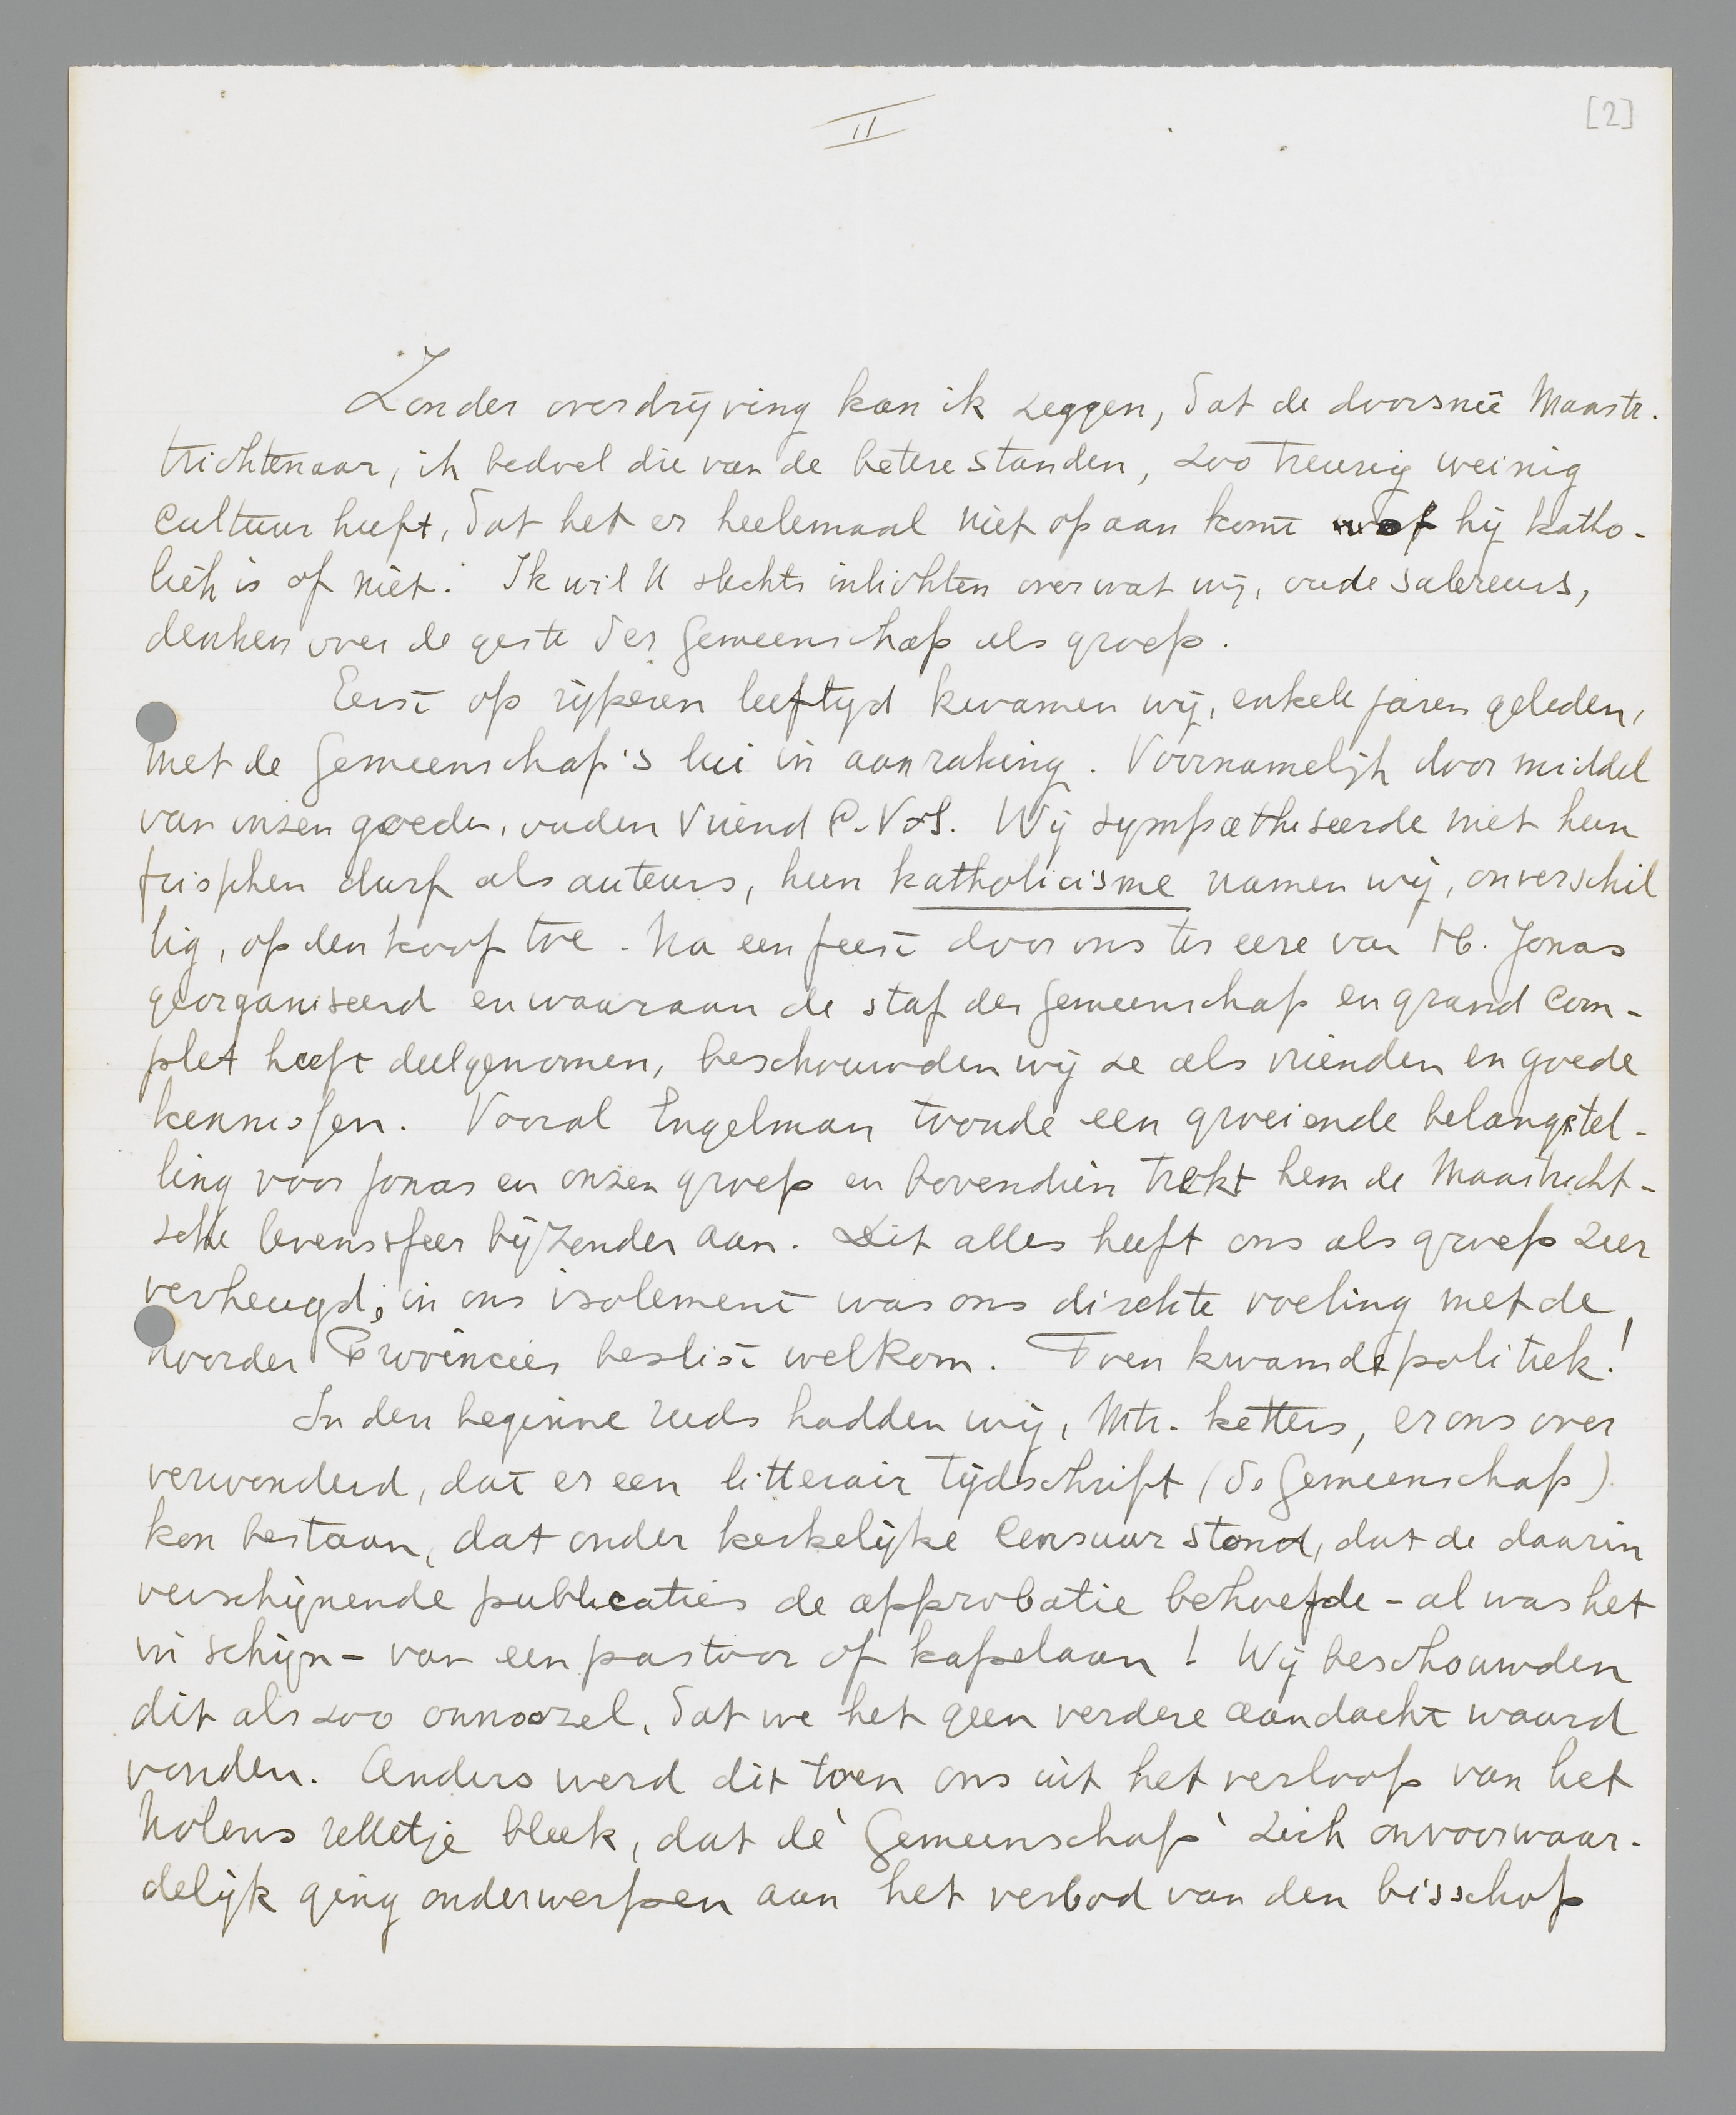 II
[2]
Zonder overdrijving kan ik zeggen, dat de doorsneê Maastr.
trichtenaar, ik bedoel die van de betere standen, zoo treurig weinig
cultuur heeft, dat het er heelemaal niet op aan komt of hij katho-
liek is of niet. Ik wil U slechts inlichten over wat wij, oude sabreurs,
denken over de geste der Gemeenschap als groep.
Eerst op rijperen leeftyd kwamen wij, enkele jaren geleden,
met de Gemeenschap's lui in aanraking. Voornamelijk door middel
van onzen goeden, ouden vriend C.V.d.S. Wij sympathiseerde met hun
frisschen durf als auteurs, hun katholicisme namen wij, onverschil
lig, op den koop toe. Na een feest door ons ter eere van H. Jonas
georganiseerd en waaraan de staf der Gemeenschap en grand com-
plet heeft deelgenomen, beschouwden wij ze als vrienden en goede
kennissen. Vooral Engelman toonde een groeiende belangstel-
ling voor Jonas en onzen groep en bovendien trekt hem de Maastricht-
sche levenssfeer bijzonder aan. Dit alles heeft ons als groep zeer
verheugd; in ons isolement was ons direkte voeling met de
noorder Provincies beslist welkom. Toen kwam de politiek!
In den beginne reeds hadden wij, Mtr. ketters, er ons over
verwonderd, dat er een litterair tijdschrift (de Gemeenschap)
kon bestaan, dat onder kerkelijke censuur stond, dat de daarin
verschijnende publicaties de approbatie behoefde - al was het
in schijn - van een pastoor of kapelaan! Wij beschouwden
dit als zoo onnoozel, dat we het geen verdere aandacht waard
vonden. Anders werd dit toen ons uit het verloop van het
Nolens relletje bleek, dat de 'Gemeenschap' zich onvoorwaar-
delijk ging onderwerpen aan het verbod van den bisschop